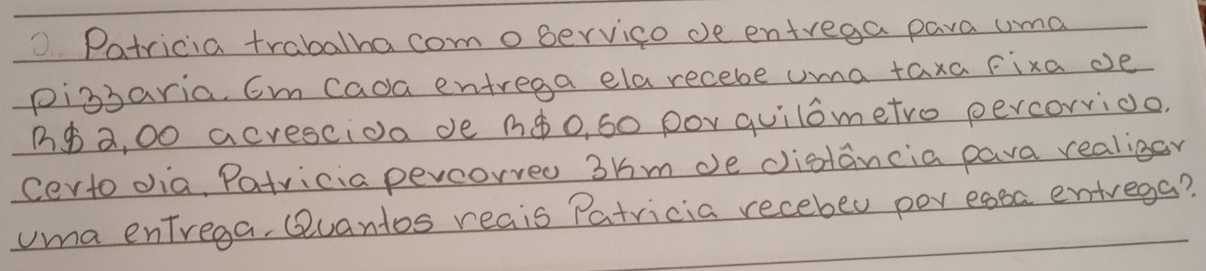 2. Patricia trabalha com o serviço de entrega para uma
pizzaria. Em cada entrega ela recebe uma taxa fixa de
R$ 2,00 acrescida de R$ 0,60 por quilômetro percorrido.
certo dia, Patricia percorreu 3km de distância para realizar
uma entrega. Quantos reais Patricia recebeu por essa entrega?